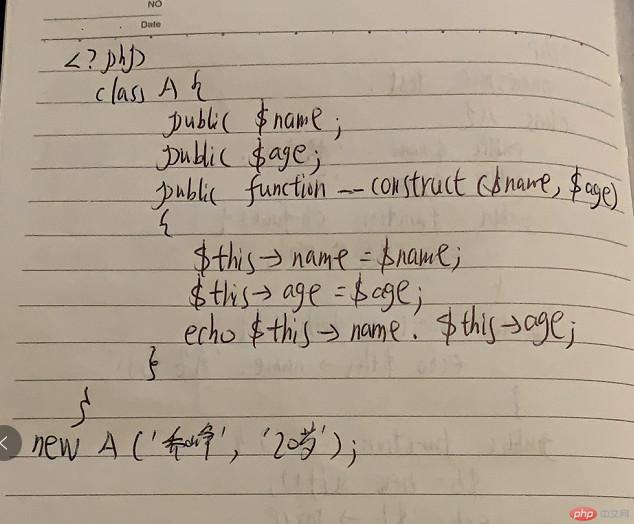 NO
Date
<?php
class A {
public $name;
public $age;
public function __construct ($name, $age)
{
$this->name = $name;
$this->age = $age;
echo $this->name . $this->age;
}
}
new A ('乔峰', '20岁');
php 中文网